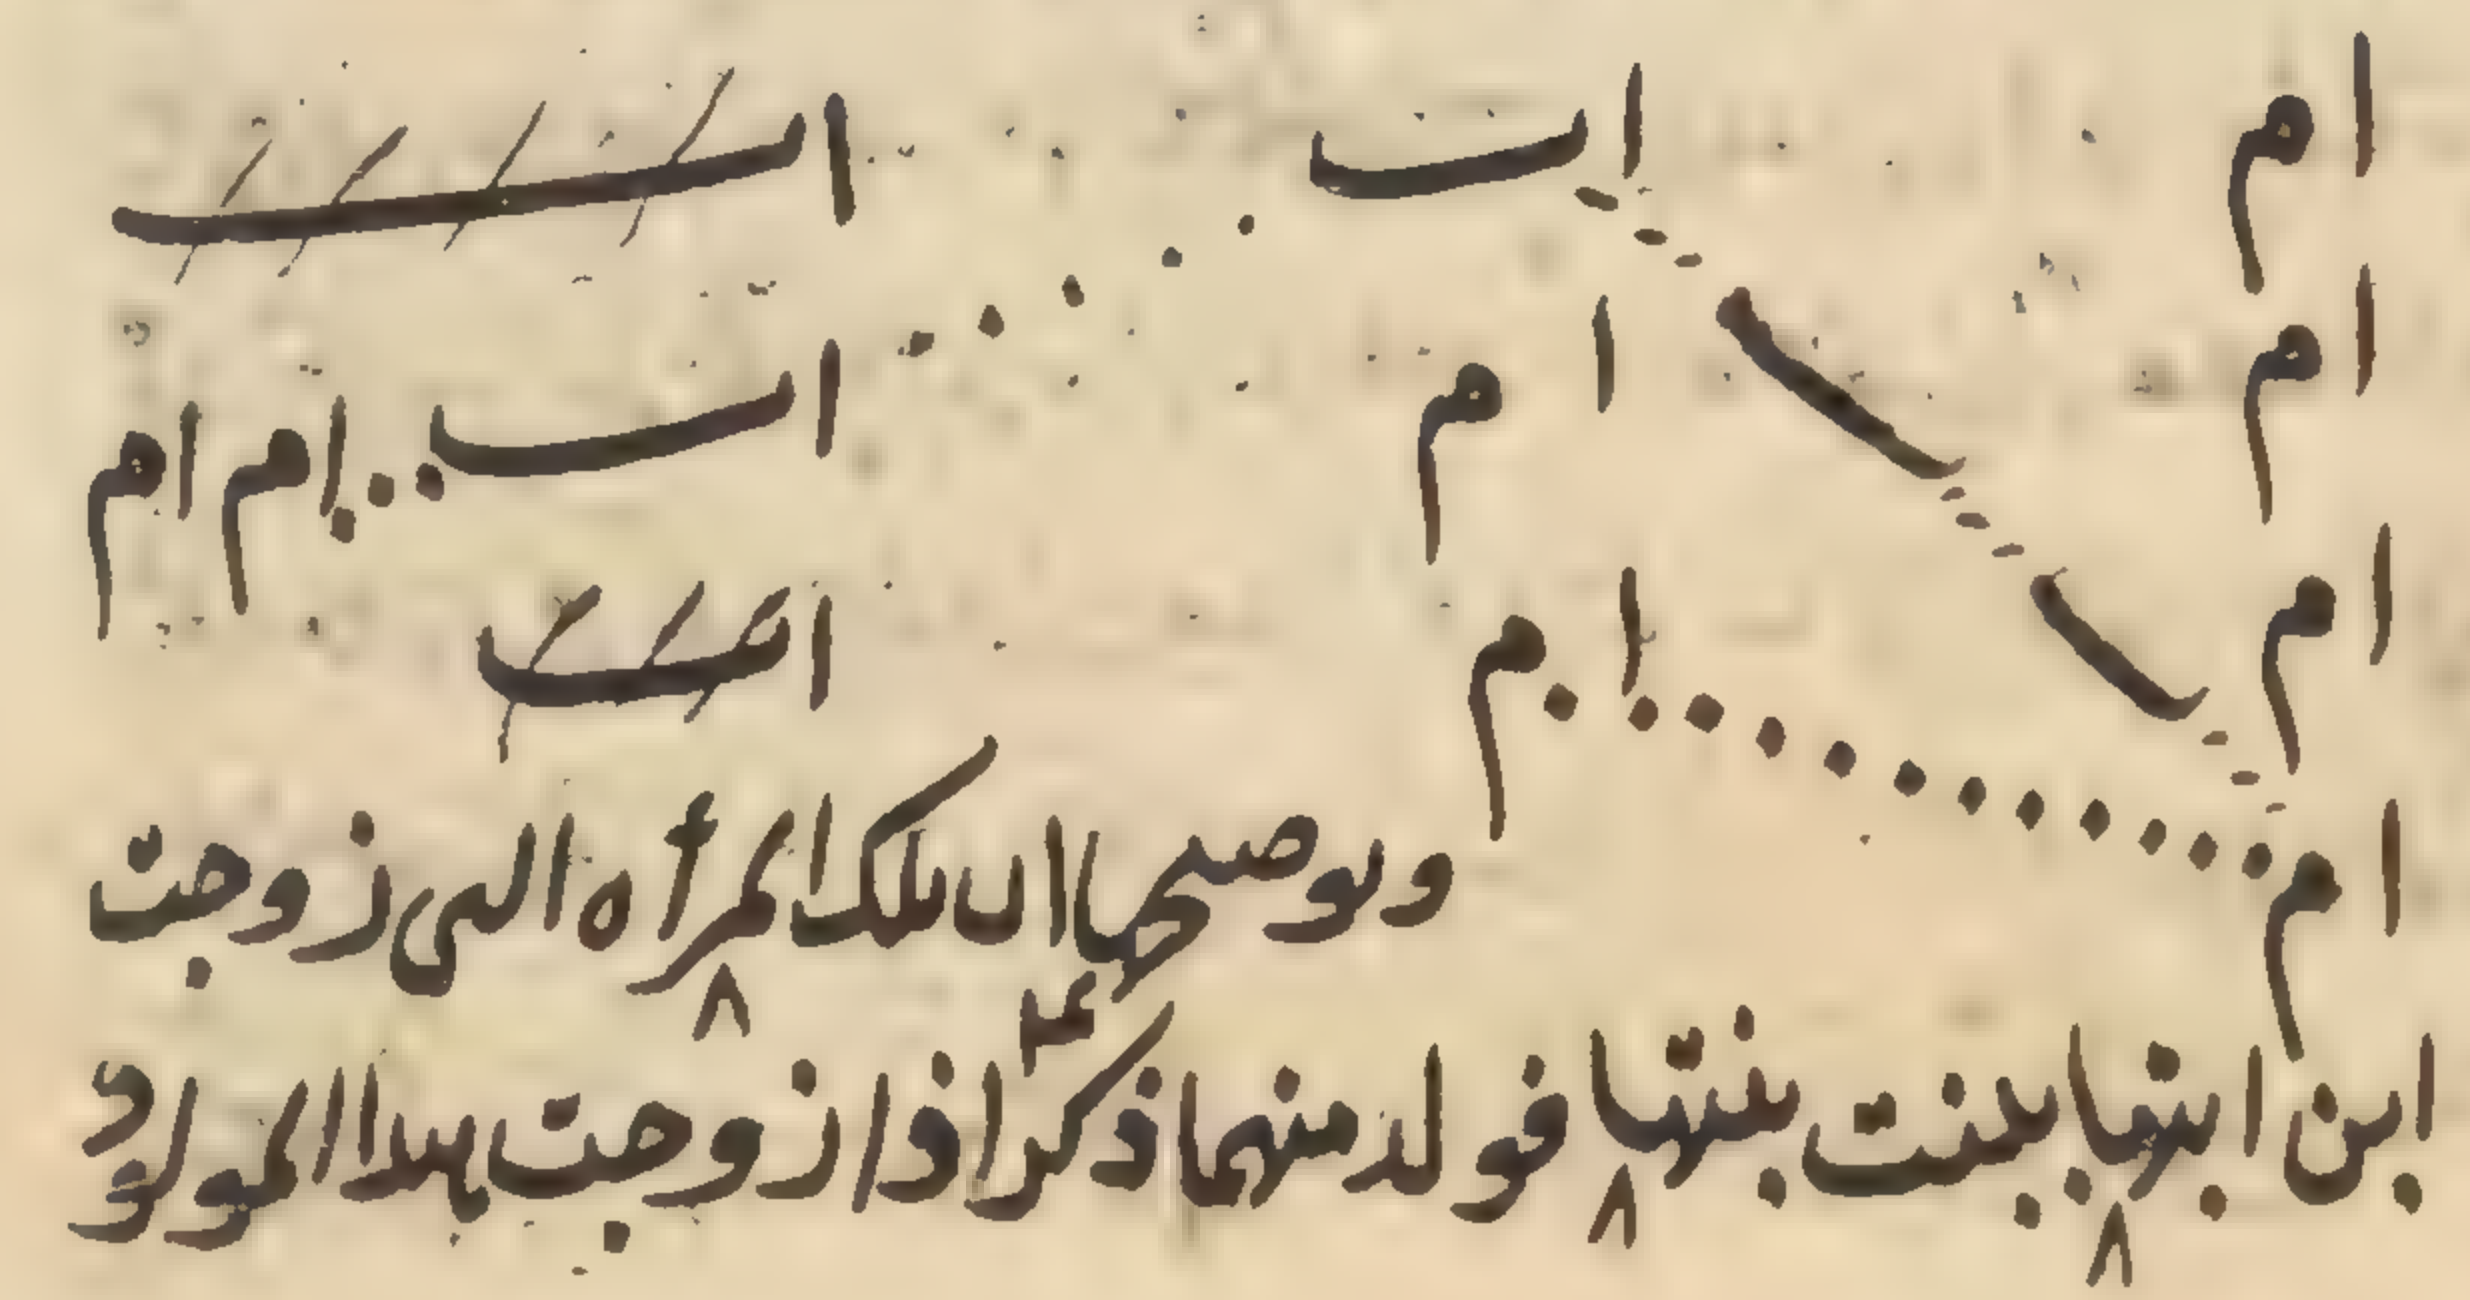 ام اب اب
ام ام اب ام ام
ام ام اب
ام وتوضيحها ان تلك المرأه التى زوجت
ابن ابنها ببنت بنتها فولد منهما ذكر اذا زوجت بهذا المولود